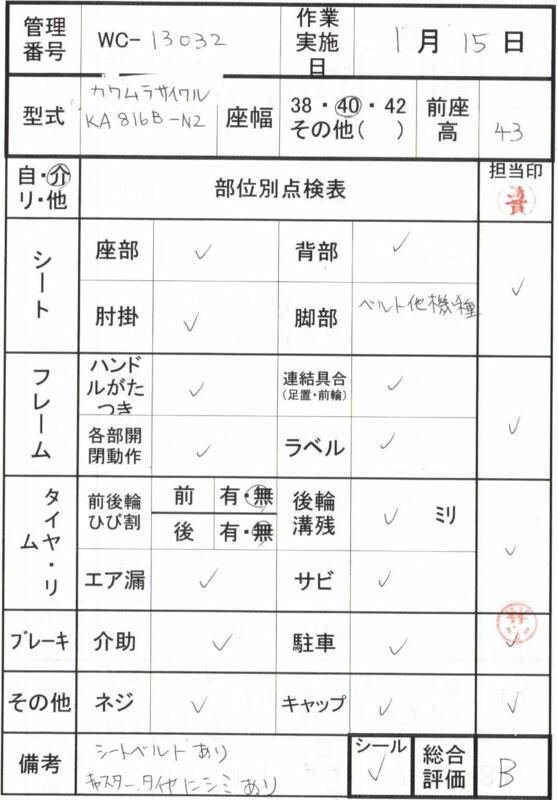 管理番号 WC-13032 作業実施日 1月15日
型式 カワムラサイクル KA816B-N2 座幅 38・40・42 その他( ) 前座高 43
自・介 リ・他 部位別点検表 担当印
シート 座部 ✓ 背部 ✓ ✓
肘掛 ✓ 脚部 ベルト他機種
フレーム ハンドルがたつき ✓ 連結具合 (足置・前輪) ✓ ✓
各部開閉動作 ✓ ラベル ✓
タイヤ・リム 前後輪ひび割 前 有・無 後輪溝残 ✓ ミリ ✓
後 有・無
エア漏 ✓ サビ ✓
ブレーキ 介助 ✓ 駐車 ✓ ✓
その他 ネジ ✓ キャップ ✓ ✓
備考 シートベルトあり シール ✓ 総合評価 B
キャスター、タイヤにシミあり